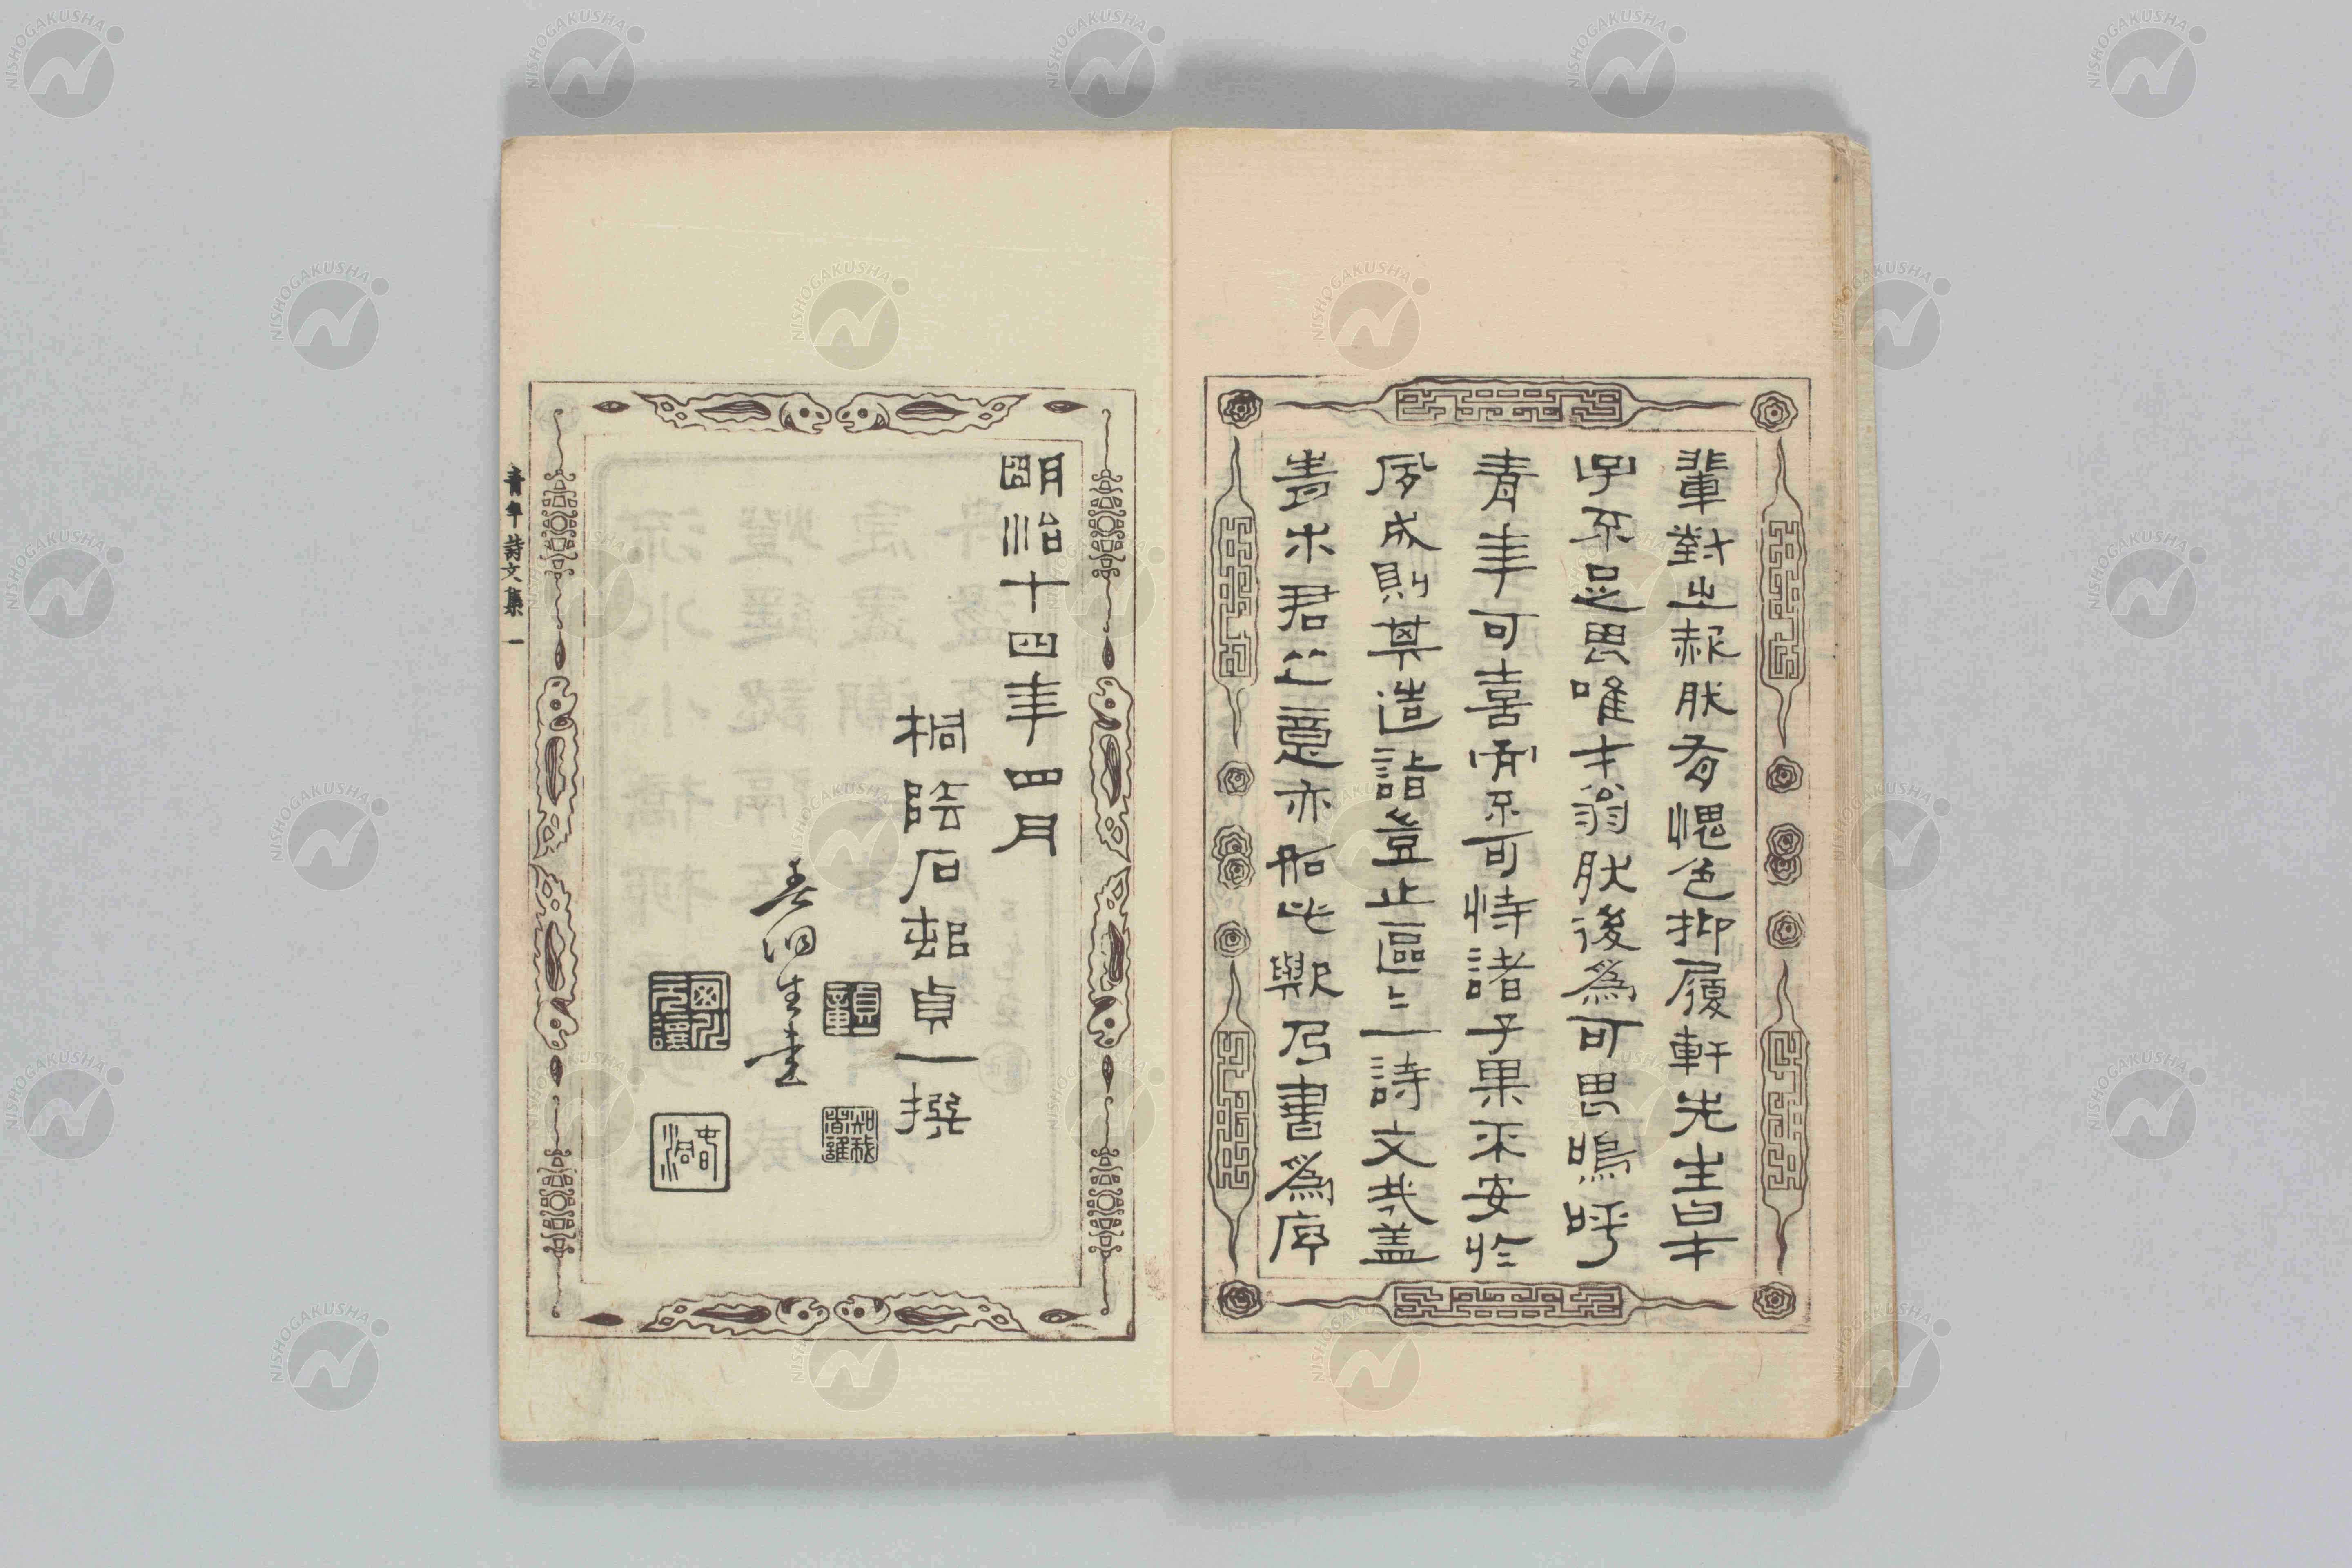 輩對之赧肰有愧色抑履軒先生曰才
子不足畏唯才翁肰後爲可畏嗚呼
青年可喜而不可恃諸子果不安於
夙成則其造詣豈止區〻一詩文哉盖
青木君之意亦船此歟乃書爲序
明治十四年四月
桐陰石邨貞一撰
春洞生書
貞一
青年詩文集 一
NISHOGAKUSHA